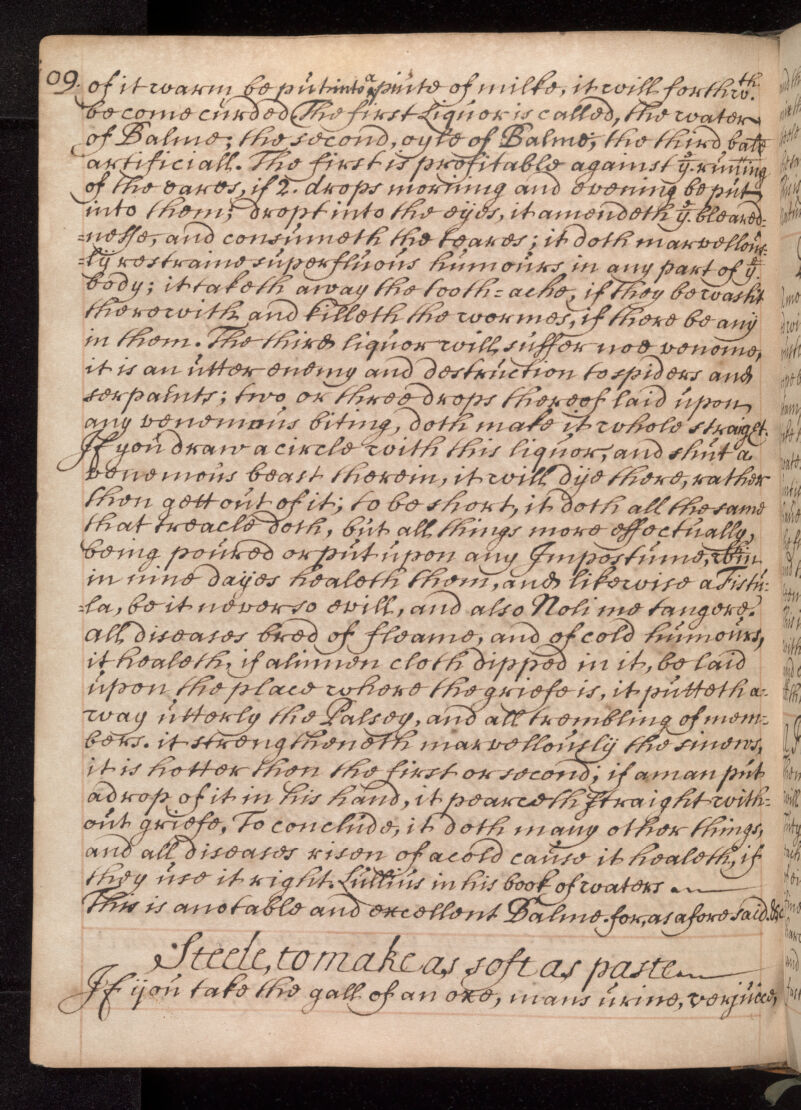 09.
of it warm be put into a pinte of milke, it will forthwth.
become curded The first Liquor is called, the water
of Balme; the second, oyle of Balme; the third, balme
artificiall. The first is profitable against ye. running
of the eares, if 2. drops morning and evening be put
into them; dropt into the eyes, it amendeth ye. bleared-
=nesse, and consumeth the teares; it doth marvellous-
=ly restraine superfluous humours in any part of ye.
body; it taketh away the tooth=ache, if they be washt
therewith, and killeth the wormes, if there be any
in them. The third liquor will suffer noe venome,
it is an utter enemy and destruction to spiders and
serpaints; two or three drops thereof laid upon
any venemous biting, doth make it whole straiget.
If you draw a circle with this liquor, and shut a
venemous beast therein, it will dye there, rather
then gett out of it; to be short, it doth all the same
that treacle doth, but all things more effectually,
being poured or put upon any Impostume,
in nine dayes healeth them, and likewise a Fistu-
=la, be it never so evill, and also Noli me tangere.
all diseases bred of fleame, and of cold humours,
it healeth, if a linnen cloth dipped in it, be laid
upon the place where the griefe is, it putteth a=
way utterly the Palsey, and all trembling of mem=
bers. it strengtheneth marvellously the sinews,
it is hotter then the first or second; if a man put
a drop of it in his hand, it pearceth straight with=
out griefe, To conclude, it doth many other things,
and all diseases risen of a cold cause it healeth, if
they use it right. Lullius in his book of waters
This is a notable and excellent Balme. for, as afore said. &c
Steele, to make as soft as paste
If you take the gall of an oxe, mans urine, verjuice,